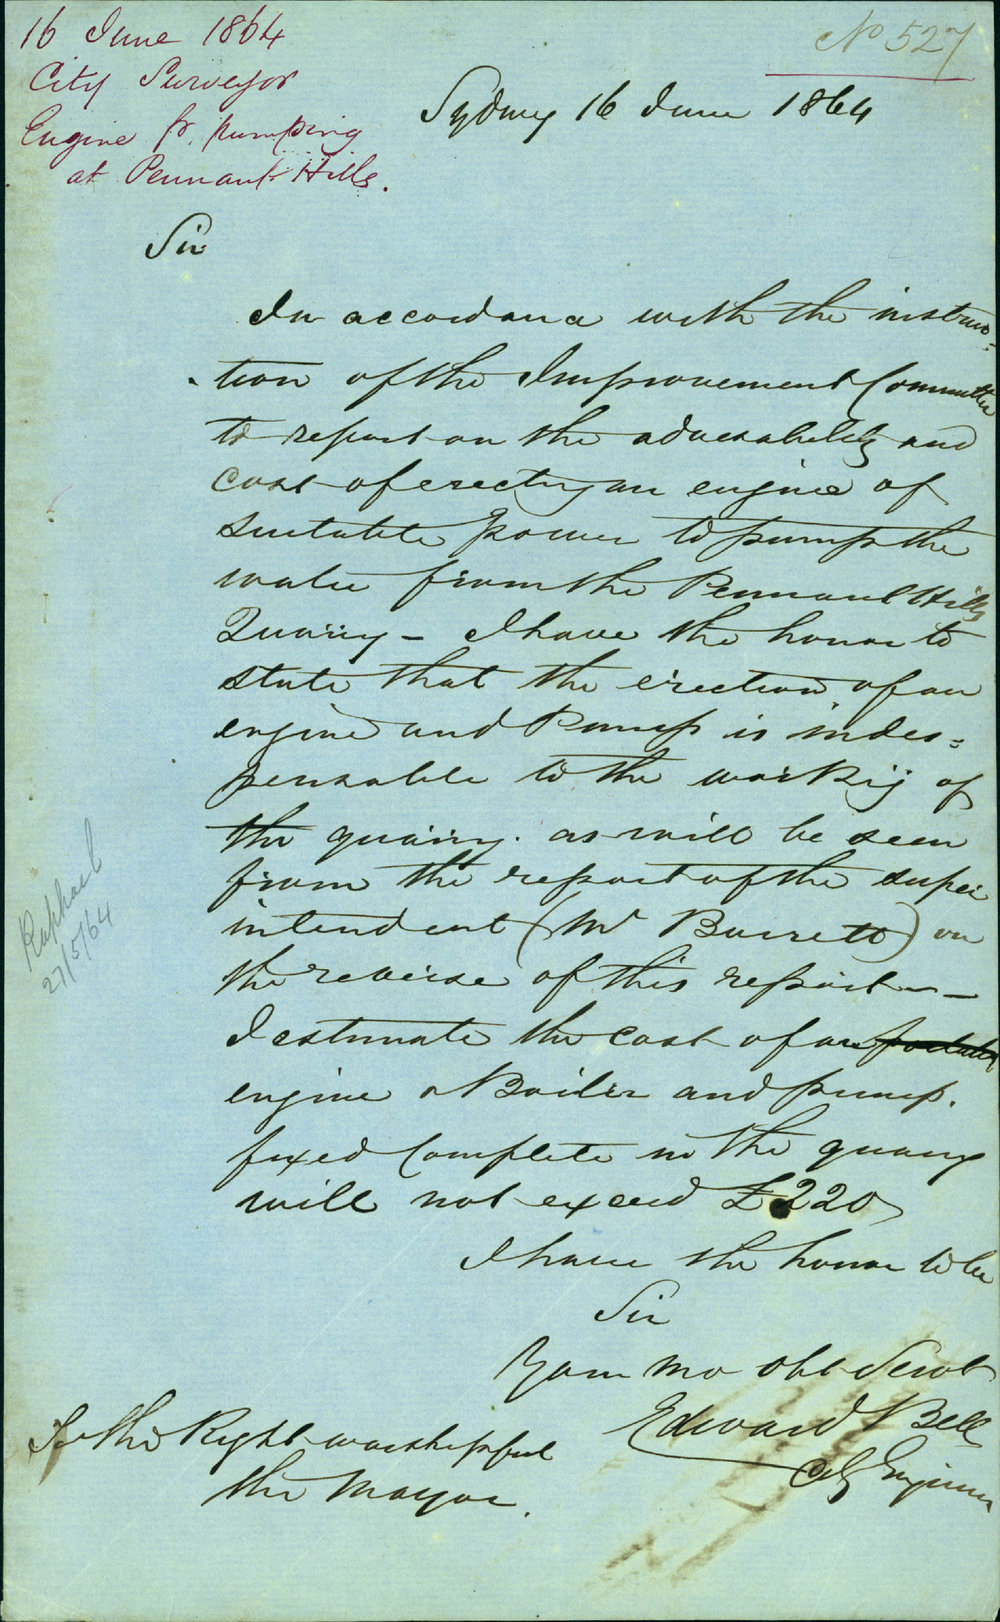 16 June 1864
City Surveyor
Engine fr. pumping
at Pennant Hills.
No 527
Sydney 16 June 1864
Sir
In accordance with the instruc=
tion of the Improvement Committee
to report on the advisability and
cost of erecting an engine of
suitable power to pump the
water from the Pennant Hills
Quarry - I have the honor to
state that the erection of an
engine and Pump is indes=
pensable to the working of
the quarry. as will be seen
from the report of the super
intendent (Mr Burrett) on
the reverse of this report -
I estimate the cost of an portable
engine & Boiler and pump.
fixed complete in the quarry
will not exceed £220
I have the honor to be
Sir
Your mo Obt Servt
Edward Bell
City Engineer
To the Right worshipful
the Mayor.
Raphael
27/5/64